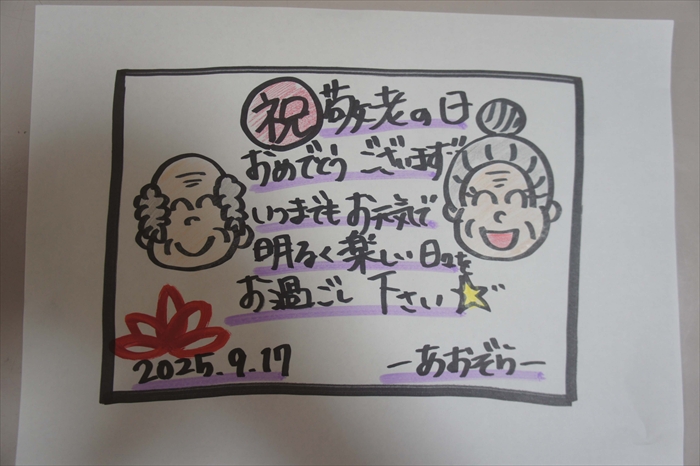 祝 敬老の日
おめでとうございます
いつまでもお元気で
明るく楽しい日々を
お過ごし下さい
2025.9.17 ーあおぞらー